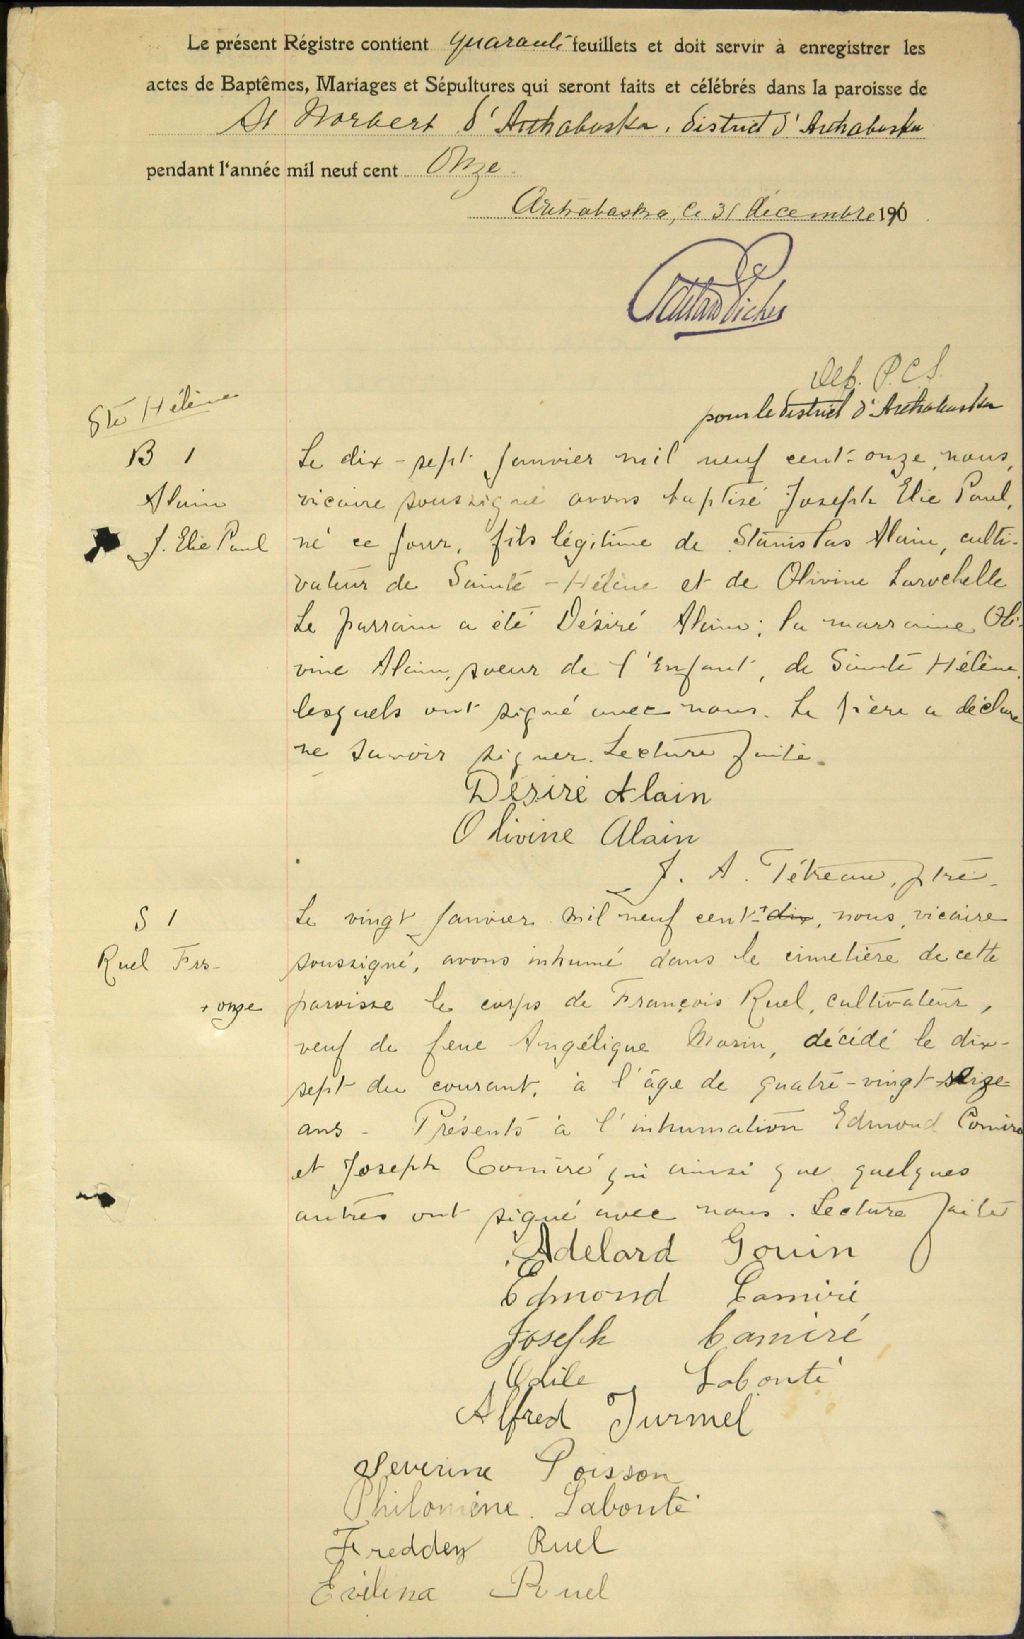 Le présent Régistre contient quarante feuillets et doit servir à enregistrer les
actes de Baptêmes, Mariages et Sépultures qui seront faits et célébrés dans la paroisse de
St Norbert d'Arthabaska, district d'Arthabaska
pendant l'année mil neuf cent Onze
Arthabaska, ce 31 décembre 1910
Dép. P.C.S.
pour le district d'Arthabaska
Ste Hélène
B 1
Alain
J. Elie Paul
Le dix-sept Janvier mil neuf cent-onze, nous,
vicaire soussigné avons baptisé Joseph Elie Paul,
né ce jour, fils légitime de Stanislas Alain, culti-
vateur de Sainte-Hélène et de Olivine Larochelle
Le parrain a été Désiré Alain; la marraine Oli-
vine Alain, soeur de l'Enfant, de Sainte Hélène,
lesquels ont signé avec nous. Le père a déclaré
ne savoir signer. Lecture faite.
Désiré Alain
Olivine Alain
J. A. Tétreau, ptre.
S 1
Ruel Frs-
+ onze
Le vingt Janvier mil neuf cent-+ dix, nous, vicaire
soussigné, avons inhumé dans le cimetière de cette
paroisse le corps de François Ruel, cultivateur,
veuf de feue Angélique Morin, décédé le dix-
sept du courant, à l'âge de quatre-vingt-seize
ans - Présents à l'inhumation Edmond Comiré
et Joseph Comiré qui ainsi que quelques
autres ont signé avec nous. Lecture faite
Adelard Gouin
Edmond Camiré
Joseph Camiré
Odile Labonté
Alfred Jurmel
Severine Poisson
Philomène Labonté
Freddey Ruel
Evilina Ruel